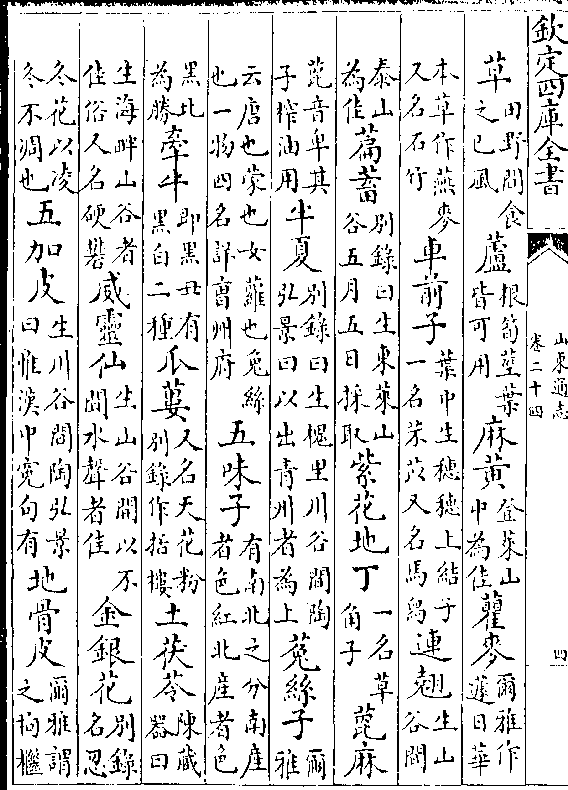 欽定四庫全書
山東通志
卷二十四
四
草田野間食之已風蘆根筍莖葉皆可用麻黄登萊山中為佳瞿麥爾雅作蘧日華
本草作燕麥又名石竹車前子葉中生穗穗上結子一名芣苡又名馬舄連翹生山谷間
泰山為佳萹蓄别錄曰生東萊山谷五月五日採取紫花地丁一名草角子蓖麻
蓖音卑其子榨油用半夏别錄曰生槐里川谷間陶弘景曰以出青州者為上菟絲子爾雅
云唐也蒙也女蘿也兔絲也一物四名詳曹州府五味子有南北之分南産者色紅北産者色
黑北為勝牽牛即黑丑有黑白二種瓜蔞又名天花粉别錄作括樓土茯苓陳藏器曰
生海畔山谷者佳俗人名硬礬威靈仙生山谷間以不聞水聲者佳金銀花别錄名忍
冬花以凌冬不凋也五加皮生川谷間陶弘景曰惟漢中寃句有地骨皮爾雅謂之枸檵